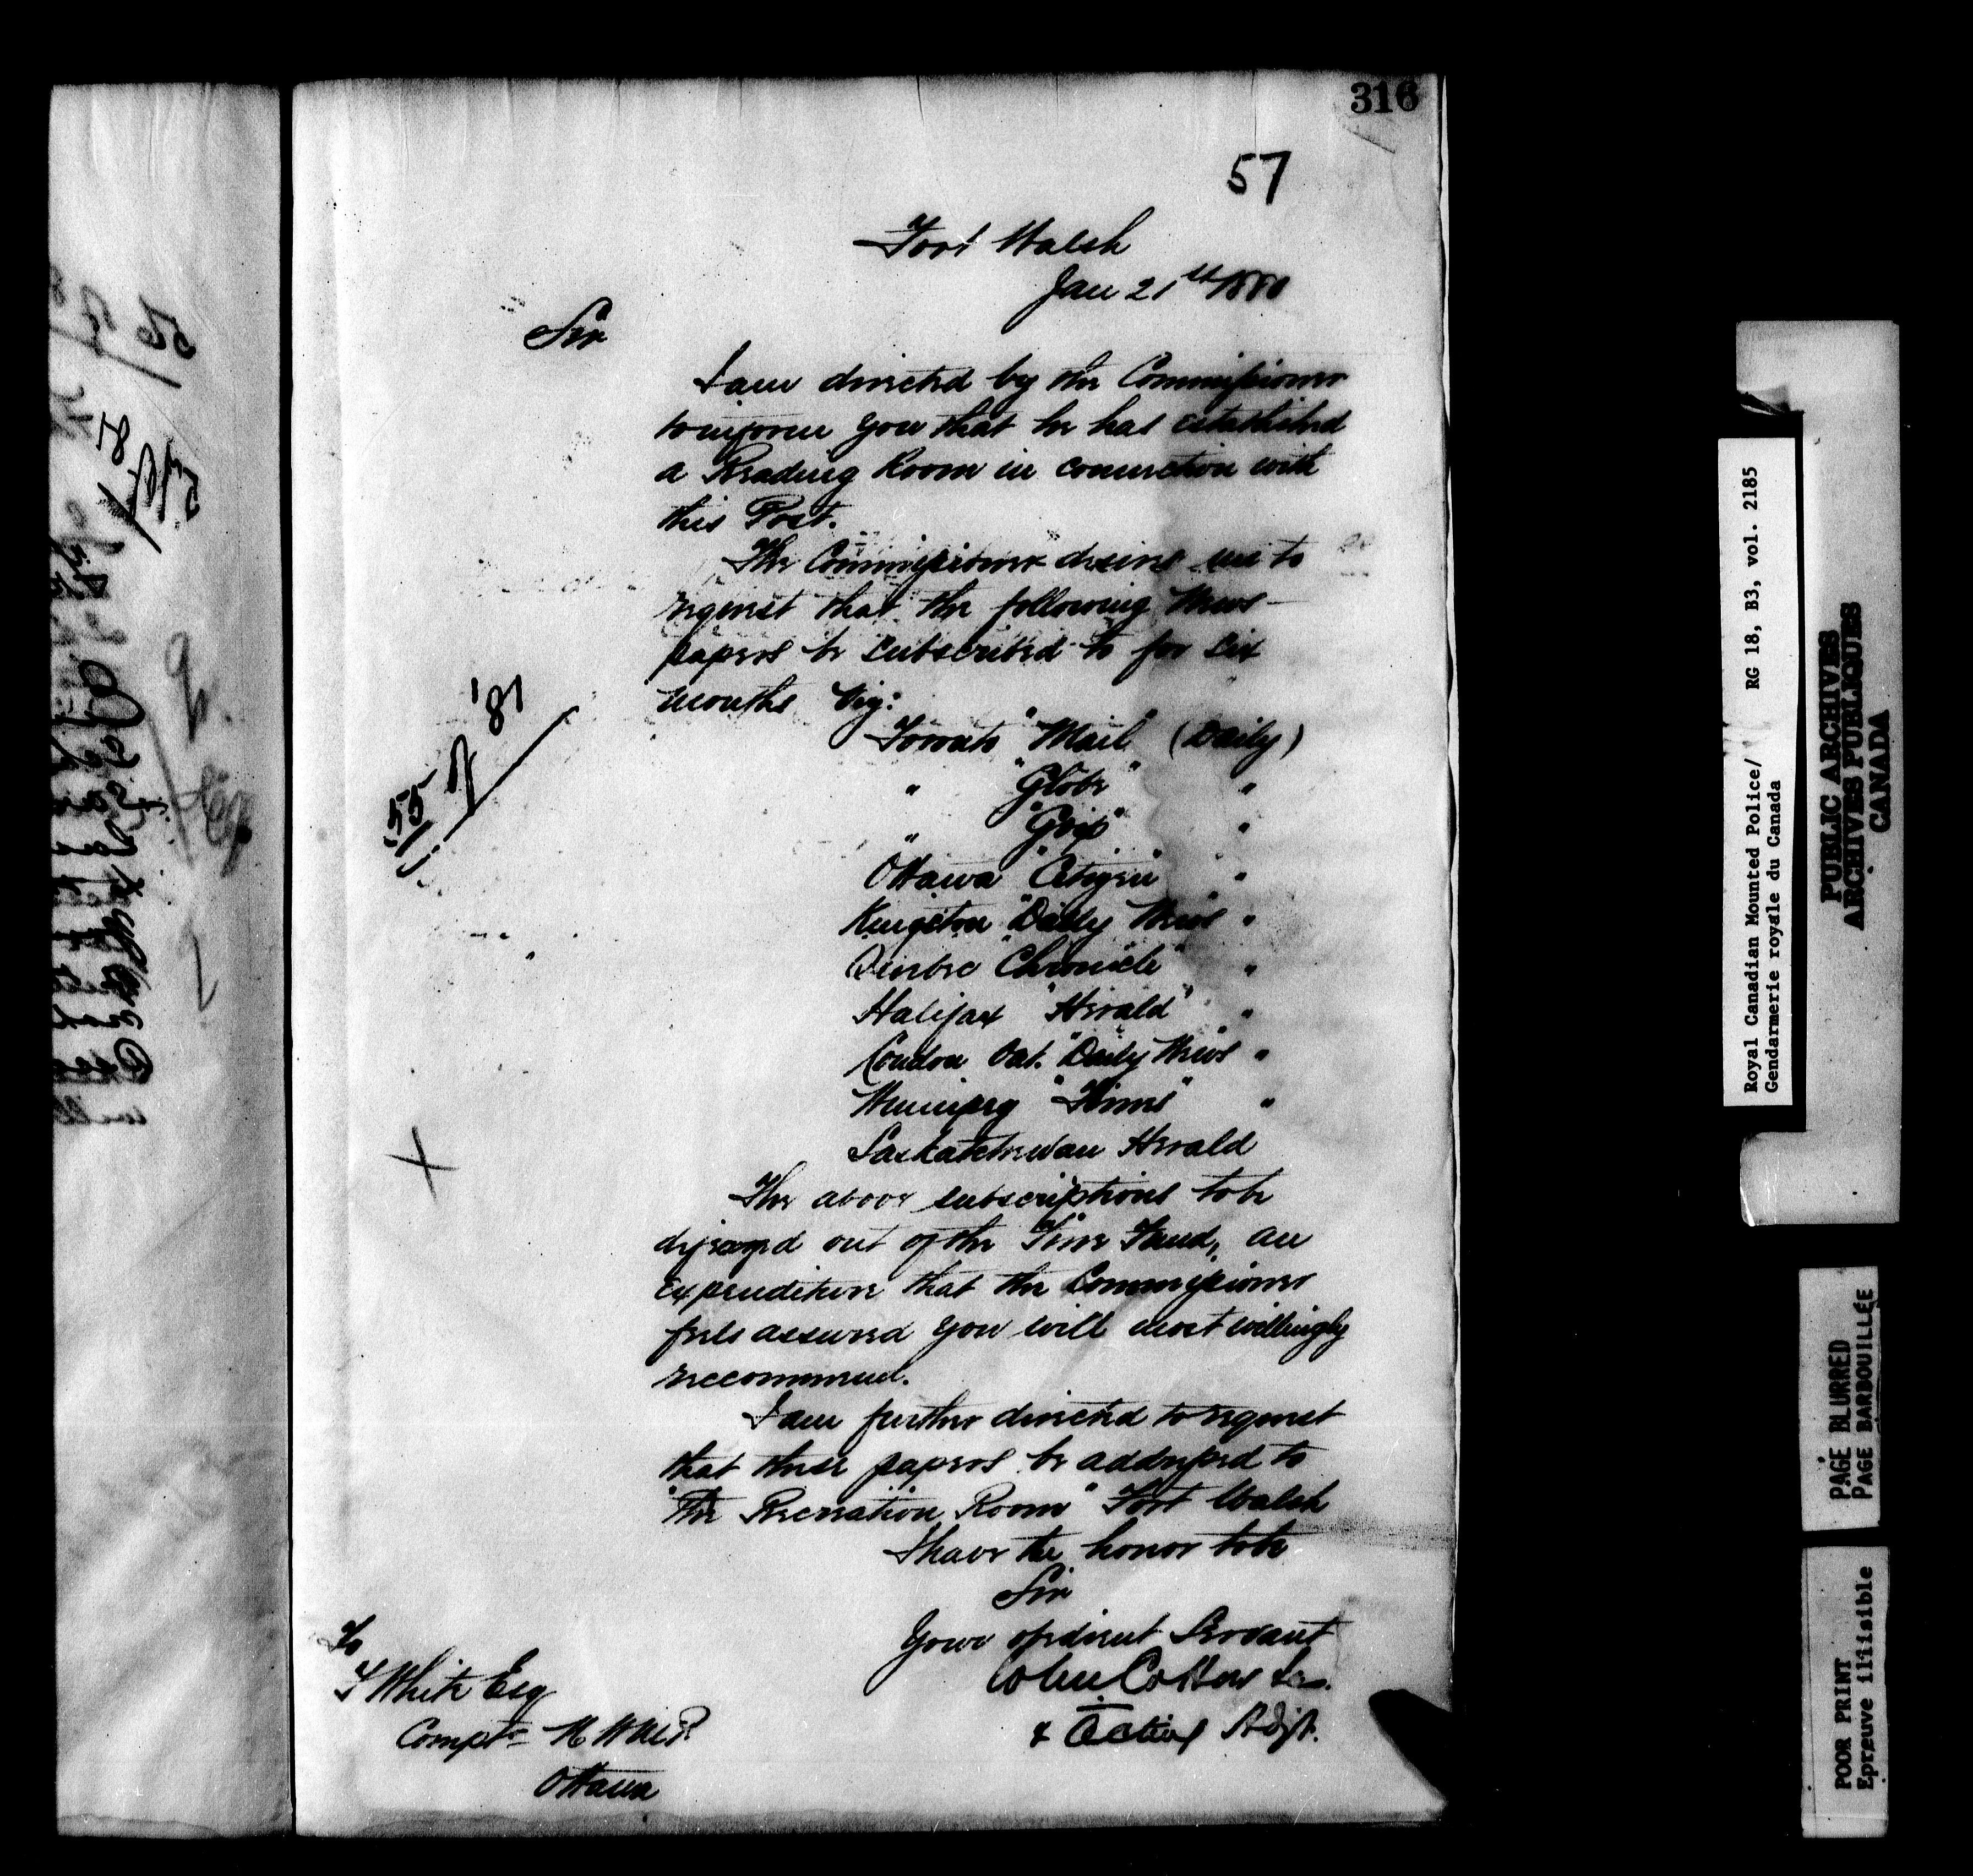 316
57
Fort Walsh
Jan 21st 1880
Sir
I am directed by the Commissioner
to inform you that he has established
a Reading Room in connection with
this Post.
The Commissioner desires me to
request that the following News-
papers be subscribed to for six
months viz:
Toronto "Mail" (Daily)
" "Globe" "
" "Grip" "
Ottawa "Citizen" "
Kingston "Daily News "
Quebec "Chronicle" "
Halifax "Herald" "
London Ont. "Daily News "
Winnipeg "Times" "
Saskatchewan Herald
55 '81
X
The above subscriptions to be
defrayed out of the Fine Fund, an
expenditure that the Commissioner
feels assured you will most willingly
reccommend.
I am further directed to request
that these papers be addressed to
"The Recreation Room" Fort Walsh
I have the honor to be
Sir
Your obedient Servant
John Cotton
& Acting Adjt.
To
F White Esq
Compt N W M P
Ottawa
Royal Canadian Mounted Police/ RG 18, B3, vol. 2185
Gendarmerie royale du Canada
PUBLIC ARCHIVES
ARCHIVES PUBLIQUES
CANADA
PAGE BLURRED
PAGE BARBOUILLÉE
POOR PRINT
Epreuve illisible